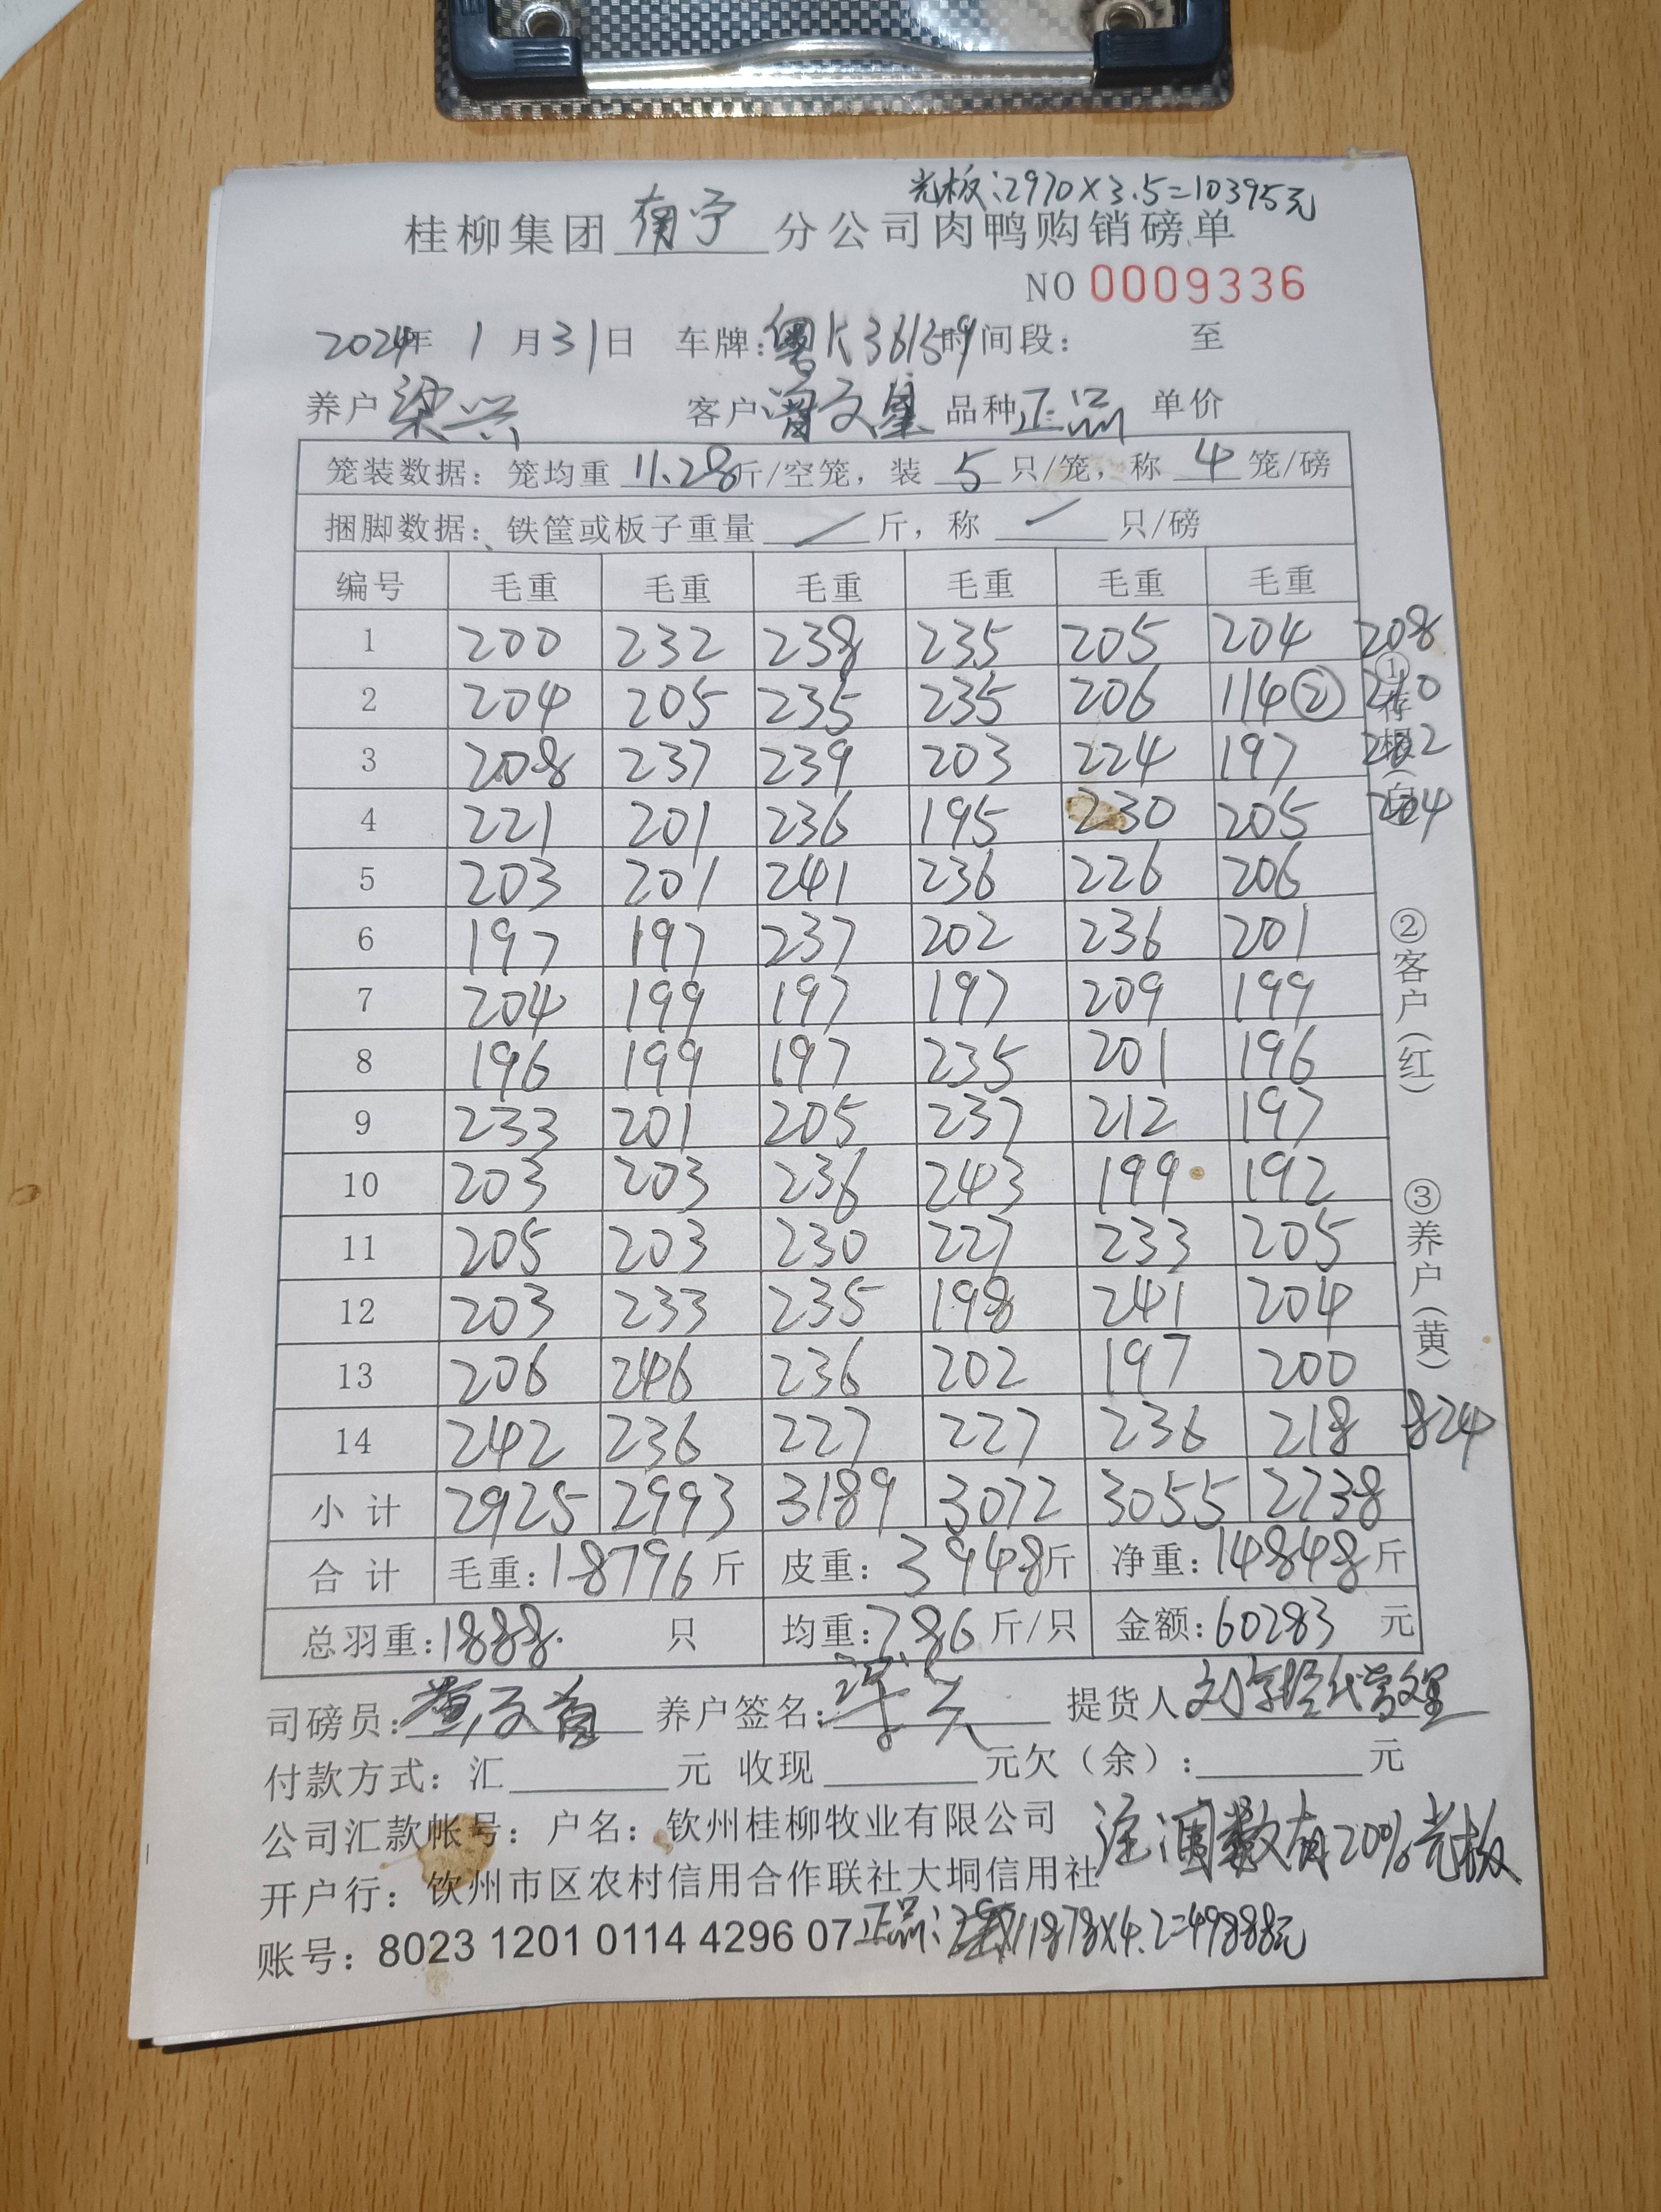 光板:2970×3.5=10395元
桂柳集团 南宁 分公司肉鸭购销磅单
NO 0009336
2024年 1 月 31 日 车牌:粤K36159 时间段: 至
养户 梁兴 客户 曾文星 品种 正品 单价
笼装数据: 笼均重 11.28 斤/空笼, 装 5 只/笼, 称 4 笼/磅
捆脚数据: 铁筐或板子重量 / 斤, 称 / 只/磅
编号 毛重 毛重 毛重 毛重 毛重 毛重
1 200 232 238 235 205 204 208
2 204 205 235 235 206 114② 210
3 208 237 239 203 224 197 202
4 221 201 236 195 230 205 204
5 203 201 241 236 226 206
6 197 197 237 202 236 201
7 204 199 197 197 209 199
8 196 199 197 235 201 196
9 233 201 205 237 212 197
10 203 203 236 243 199 192
11 205 203 230 227 233 205
12 203 233 235 198 241 204
13 206 246 236 202 197 200
14 242 236 227 227 236 218 824
小计 2925 2993 3189 3072 3055 2738
合计 毛重:18796斤 皮重:3948斤 净重:14848斤
总羽重:1888. 只 均重:7.86 斤/只 金额:60283 元
①存根(白)
②客户(红)
③养户(黄)
司磅员: 养户签名: 提货人
付款方式: 汇 元 收现 元欠(余): 元
公司汇款帐号: 户名: 钦州桂柳牧业有限公司
注 数有20%光板
开户行: 钦州市区农村信用合作联社大垌信用社
账号: 8023 1201 0114 4296 07 正品: 11878×4.2=49888元